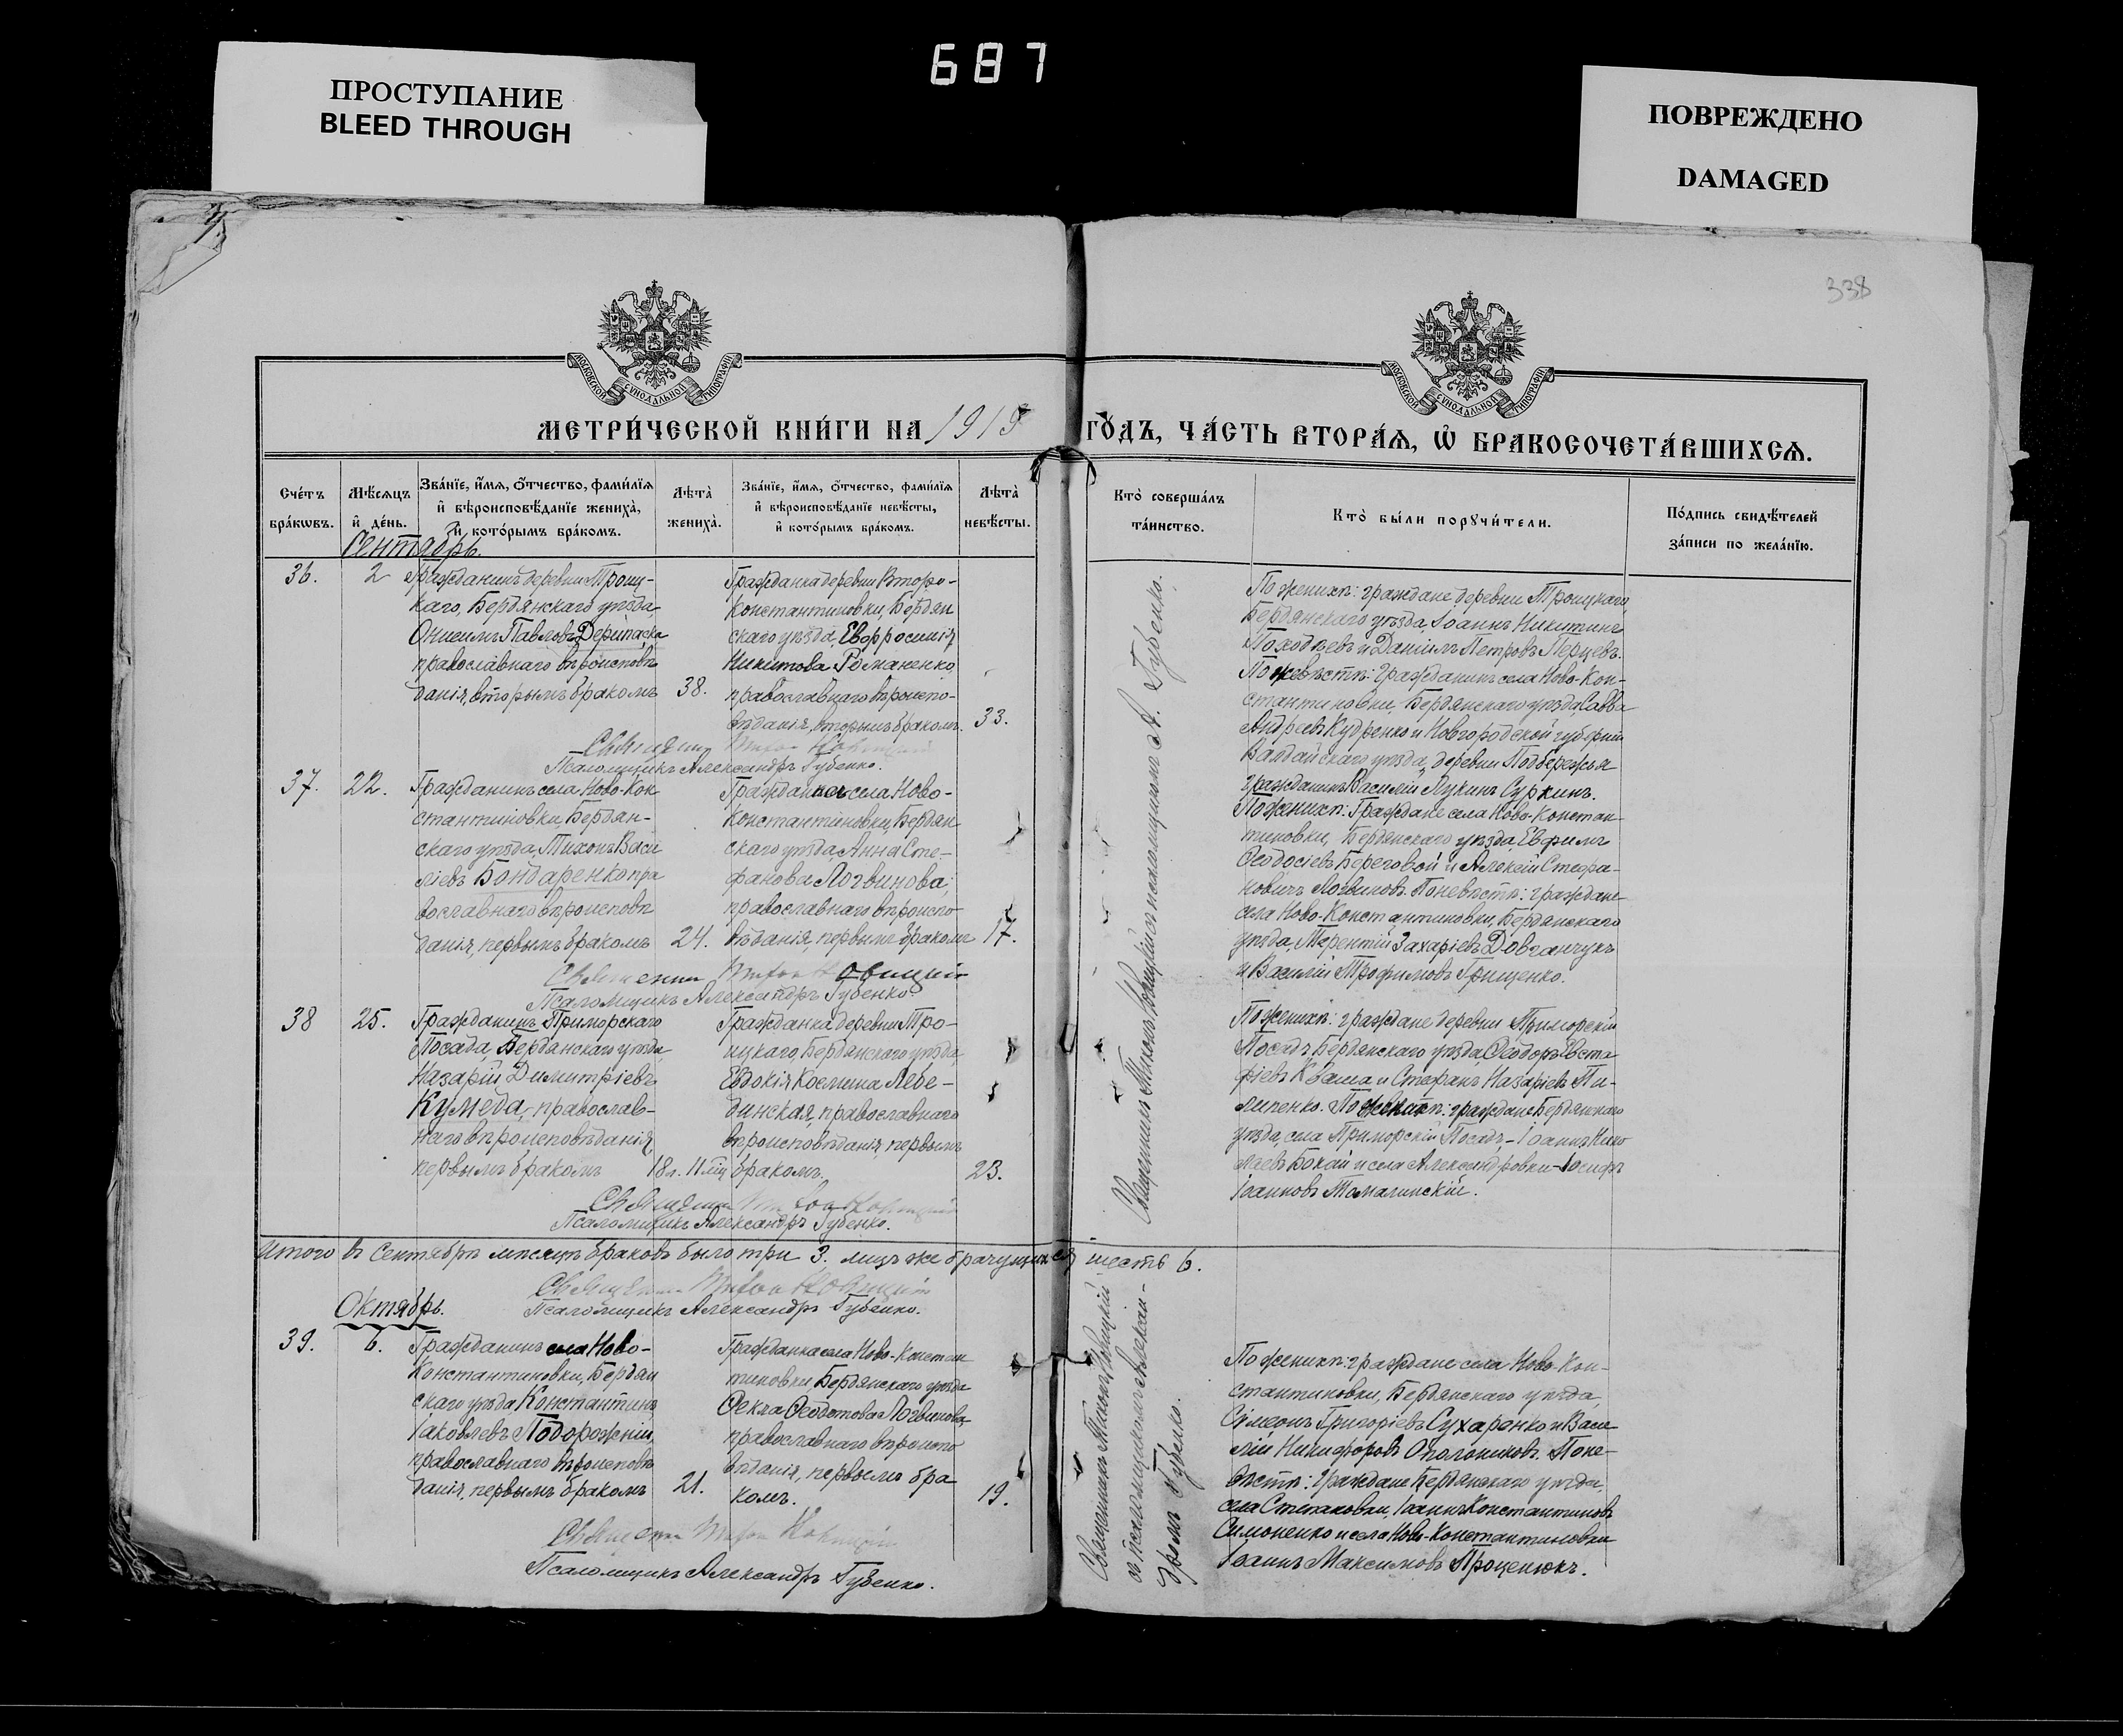 687
ПРОСТУПАНИЕ
BLEED THROUGH
ПОВРЕЖДЕНО
DAMAGED
338
МОСКОВСКОЙ СУНОДАЛЬНОЙ ТИПОГРАФІИ
МОСКОВСКОЙ СУНОДАЛЬНОЙ ТИПОГРАФІИ
МЕТРИ́ЧЕСКОЙ КНИ́ГИ НА 1919 ГО́ДЪ, ЧА́СТЬ ВТОРА́Ѧ, Ѡ҆ БРАКОСОЧЕТА́ВШИХСѦ.
Сче́тъ
бра́кѡвъ.
Мѣ́сяцъ
и҆ де́нь.
Зва́нїе, и҆́мѧ, ѻ҆́тчество, фами́лїѧ
и҆ вѣроисповѣ́данїе жениха̀,
и҆ кото́рымъ бра́комъ.
Лѣта̀
жениха̀.
Зва́нїе, и҆́мѧ, ѻ҆́тчество, фами́лїѧ
и҆ вѣроисповѣ́данїе невѣ́сты,
и҆ кото́рымъ бра́комъ.
Лѣта̀
невѣ́сты.
Кто̀ соверша́лъ
та́инство.
Кто̀ бы́ли порꙋчи́тели.
По́дпись свидѣ́телей
за́писи по жела́нїю.
Сентябрь.
36.
2
Гражданинъ деревни Троиц-
каго, Бердянскаго уѣзда,
Онисимъ Павловъ Дерипаска
православнаго вѣроисповѣ
данія, вторымъ бракомъ
38.
Гражданка деревни Второ-
константиновки, Бердян
скаго уѣзда, Евфросинія
Никитова Романенко,
православнаго вѣроиспо-
вѣданія, вторымъ бракомъ.
33.
Священникъ Тихонъ Новицкій съ псаломщикомъ А. Губенко.
По женихѣ: граждане деревни Троицкаго,
Бердянскаго уѣзда, Іоаннъ Никитинъ
и Даніилъ Петровъ Перцевъ.
По невѣстѣ: Гражданинъ села Ново-Кон-
стантиновки, Бердянскаго уѣзда, Савва
Андреевъ Кудренко и Новгородской губерніи
Валдайскаго уѣзда, деревни Подбережья
гражданинъ Василій Лукинъ Суркинъ.
Священникъ Тихонъ Новицкій
Псаломщикъ Александръ Губенко.
37.
22.
Гражданинъ села Ново-Кон
стантиновки, Бердян-
скаго уѣзда, Тихонъ Васи
ліевъ Бондаренко пра
вославнаго вѣроисповѣ
данія, первымъ бракомъ
24.
Гражданка села Ново-
Константиновки, Бердян
скаго уѣзда Анна Сте-
фанова Логвинова,
православнаго вѣроиспо
вѣданія, первымъ бракомъ
17.
По женихѣ: Граждане села Ново-Констан-
тиновки, Бердянскаго уѣзда, Евфимъ
Ѳеодосіевъ Береговой и Алексій Стефа-
новичъ Логвиновъ. По невѣстѣ: граждане
села Ново-Константиновки, Бердянскаго
уѣзда, Терентій Захаріевъ Довганчукъ
и Василій Трофимовъ Грищенко.
Священникъ Тихонъ Новицкій
Псаломщикъ Александръ Губенко.
38
25.
Гражданинъ Приморскаго
Посада, Бердянскаго уѣзда,
Назарій Димитріевъ
Кумеда, православ-
наго вѣроисповѣданія,
первымъ бракомъ
18 л. 11 мѣц
Гражданка деревни Тро-
ицкаго, Бердянскаго уѣзда,
Евдокія Космина Лебе-
динская, православнаго
вѣроисповѣданія, первымъ
бракомъ.
23.
По женихѣ: граждане деревни Приморскій
Посадъ, Бердянскаго уѣзда, Ѳеодоръ Евста
фіевъ Кваша и Стефанъ Назаріевъ Пи-
липенко. По невѣстѣ: граждане Бердянскаго
уѣзда, села Приморскій Посадъ, - Іоаннъ Нико
лаевъ Бокай и села Александровки - Іосифъ
Іоанновъ Томалинскій.
Священникъ Тихонъ Новицкій
Псаломщикъ Александръ Губенко.
Итого въ Сентябрѣ мѣсяцѣ браковъ было три 3. лицъ же брачущихся шесть 6.
Священникъ Тихонъ Новицкій
Псаломщикъ Александръ Губенко.
Октябрь.
39.
6.
Гражданинъ села Ново-
Константиновки, Бердян
скаго уѣзда Константинъ
Іаковлевъ Подорожній,
православнаго вѣроисповѣ
данія, первымъ бракомъ
21.
Гражданка села Ново-Констан
тиновки, Бердянскаго уѣзда
Ѳекла Ѳеодотова Логвинова
православнаго вѣроиспо
вѣданія, первымъ бра
комъ.
19.
Священникъ Тихонъ Новицкій
съ псаломщикомъ Алексан-
дромъ Губенко.
По женихѣ: граждане села Ново-Кон-
стантиновки, Бердянскаго уѣзда,
Симеонъ Григоріевъ Сухаренко и Васи
лій Никифоровъ Ополониковъ. По не-
вѣстѣ: Граждане Бердянскаго уѣзда,
села Степановки, Іоаннъ Константиновъ
Симоненко и села Ново-Константиновки
Іоаннъ Максимовъ Проценюкъ.
Священникъ Тихонъ Новицкій
Псаломщикъ Александръ Губенко.